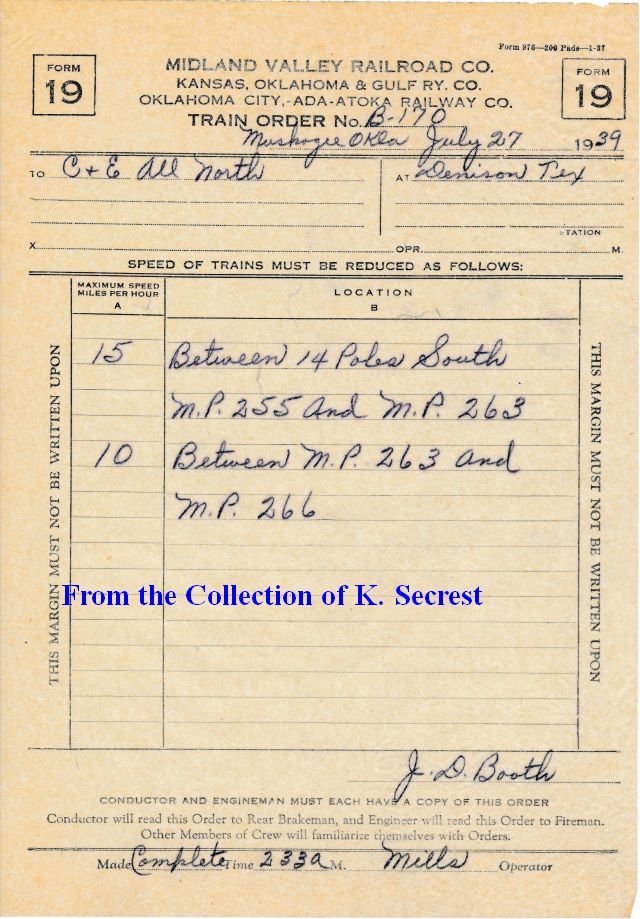 Form 976—200 Pads—1-37
FORM
19
MIDLAND VALLEY RAILROAD CO.
KANSAS, OKLAHOMA & GULF RY. CO.
OKLAHOMA CITY-ADA-ATOKA RAILWAY CO.
FORM
19
TRAIN ORDER No. B-170
Muskogee Okla July 27 1939
TO C + E All North AT Denison Tex
STATION
X OPR. M.
SPEED OF TRAINS MUST BE REDUCED AS FOLLOWS:
MAXIMUM SPEED
MILES PER HOUR
A
LOCATION
B
THIS MARGIN MUST NOT BE WRITTEN UPON
15 Between 14 Poles South
M.P. 255 And M.P. 263
10 Between M.P. 263 and
M.P. 266
THIS MARGIN MUST NOT BE WRITTEN UPON
From the Collection of K. Secrest
J. D. Booth
CONDUCTOR AND ENGINEMAN MUST EACH HAVE A COPY OF THIS ORDER
Conductor will read this Order to Rear Brakeman, and Engineer will read this Order to Fireman.
Other Members of Crew will familiarize themselves with Orders.
Made Complete Time 233A M. Mills Operator